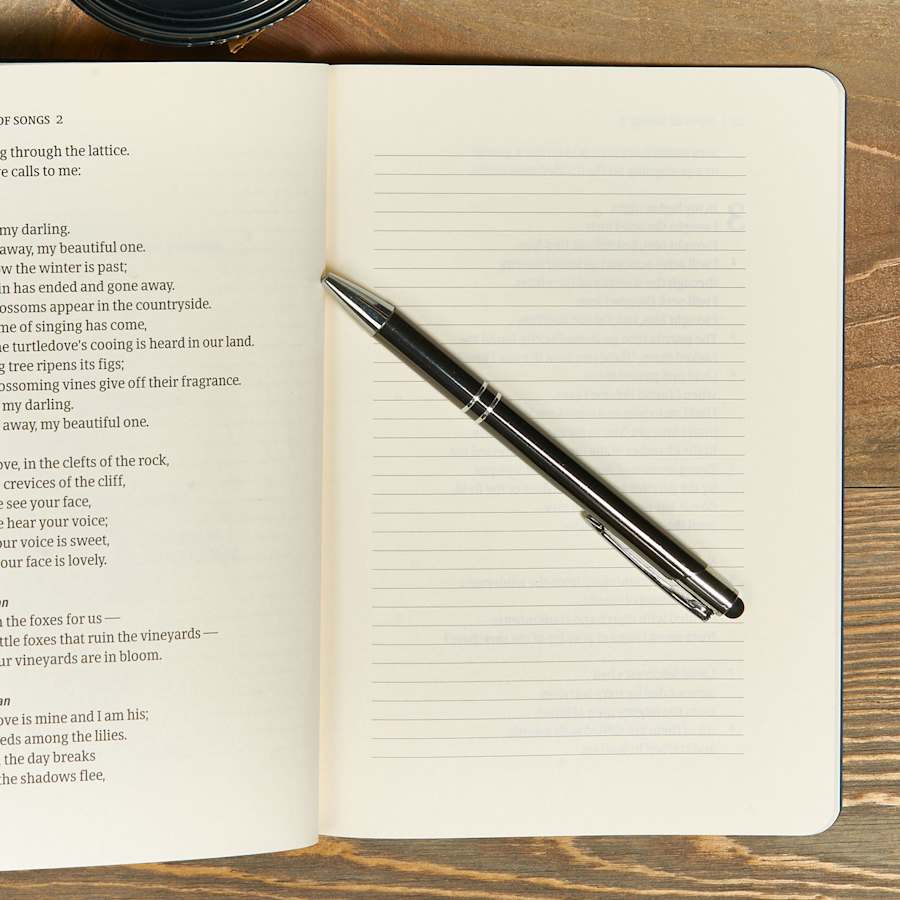 OF SONGS 2
g through the lattice.
e calls to me:
my darling.
away, my beautiful one.
ow the winter is past;
in has ended and gone away.
ossoms appear in the countryside.
me of singing has come,
e turtledove's cooing is heard in our land.
g tree ripens its figs;
ossoming vines give off their fragrance.
my darling.
away, my beautiful one.
ove, in the clefts of the rock,
crevices of the cliff,
e see your face,
e hear your voice;
our voice is sweet,
our face is lovely.
an
n the foxes for us —
ttle foxes that ruin the vineyards —
ur vineyards are in bloom.
an
ove is mine and I am his;
eds among the lilies.
the day breaks
the shadows flee,